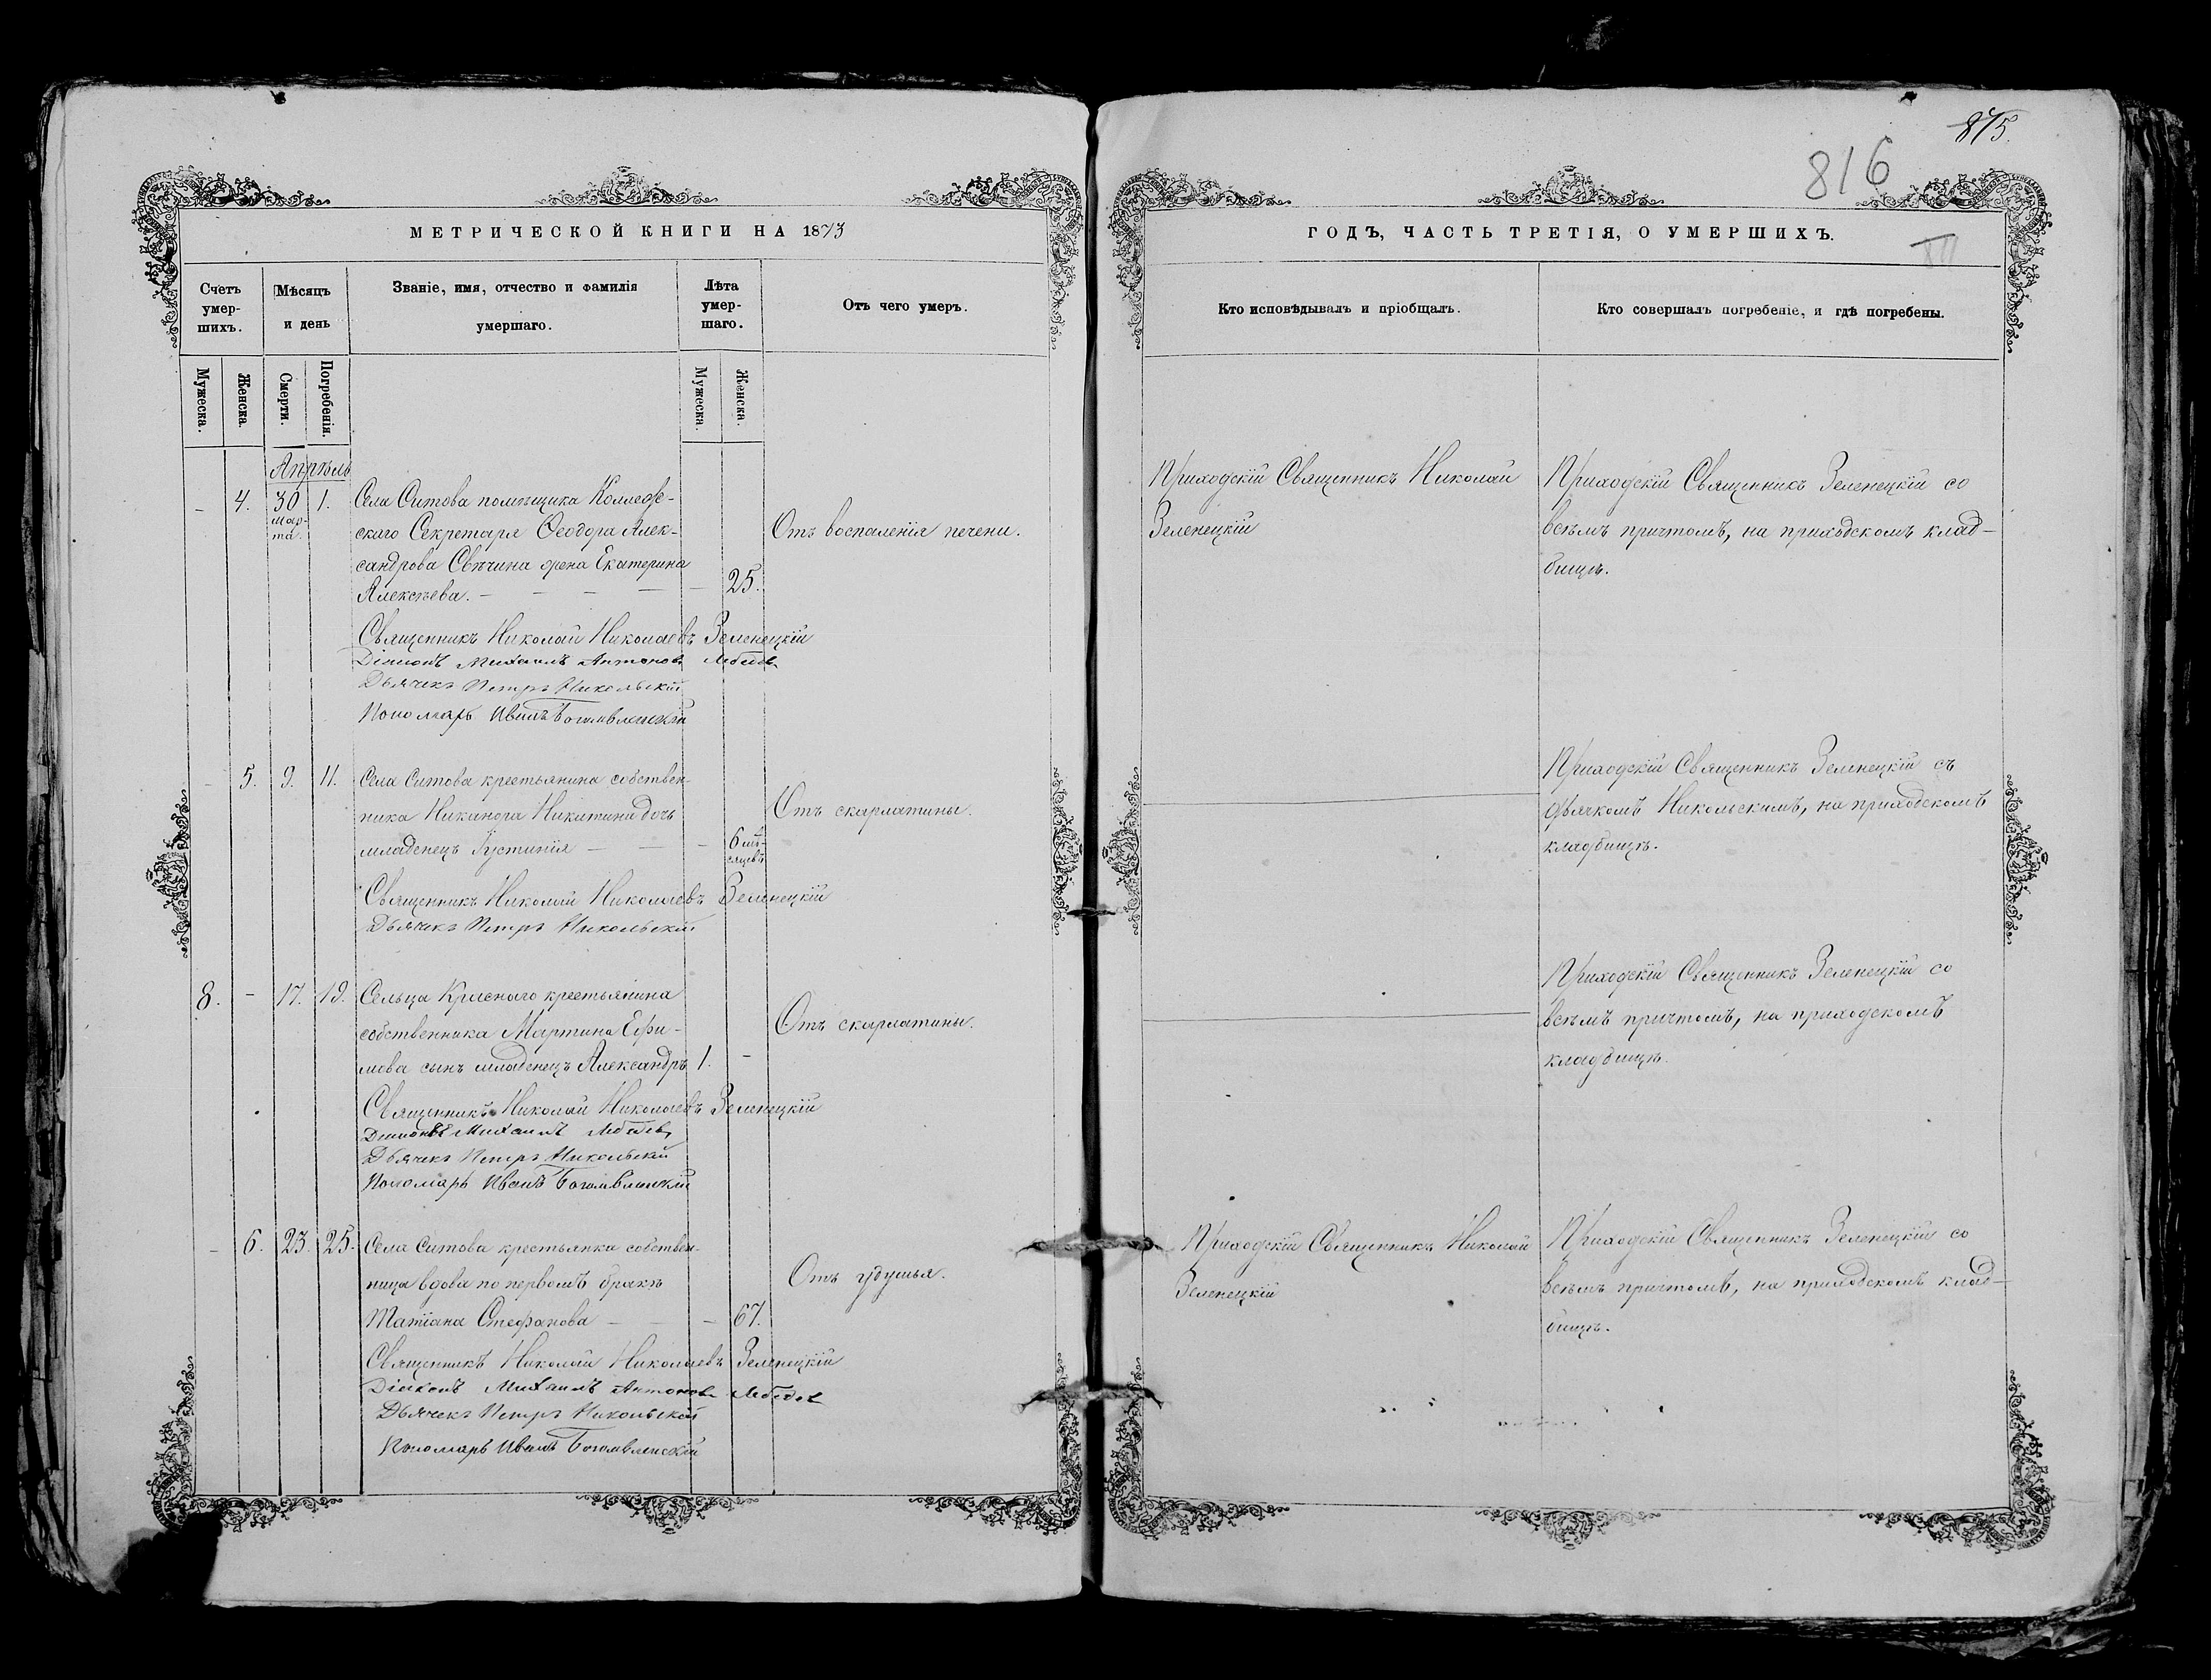 875.
816
III
МЕТРИЧЕСКОЙ КНИГИ НА 1873
Счетъ умер-шихъ.
Мѣсяцъ и день
Званіе, имя, отчество и фамилія умершаго.
Лѣта умер-шаго.
Отъ чего умеръ.
Мужеска.
Женска.
Смерти.
Погребенія.
Мужеска.
Женска.
Апрѣль
4. 30 Мар-та. 1.
Села Ситова помѣщика Коллеж-
скаго Секретаря Ѳеодора Алек-
сандрова Свѣчина жена Екатерина
Алексѣева. 25.
Отъ воспаленія печени.
Священникъ Николай Николаевъ Зеленецкій
Діаконъ Михаилъ Антоновъ Лебедевъ
Дьячекъ Петръ Никольскій
Пономарь Иванъ Богоявленскій
5. 9. 11.
Села Ситова крестьянина собствен-
ника Никанора Никитина дочь
младенецъ Іустинія 6 мѣ-сяцевъ
Отъ скарлатины.
Священникъ Николай Николаевъ Зеленецкій
Дьячекъ Петръ Никольскій
8. - 17. 19.
Сельца Краснаго крестьянина
собственника Мартина Ефи-
мова сынъ младенецъ Александръ 1. -
Отъ скарлатины.
Священникъ Николай Николаевъ Зеленецкій
Діаконъ Михаилъ Лебедевъ
Дьячекъ Петръ Никольскій
Пономарь Иванъ Богоявленскій
- 6. 23. 25.
Села Ситова крестьянка собствен-
ница вдова по первомъ бракѣ
Матіана Стефанова 67.
Отъ удушья.
Священникъ Николай Николаевъ Зеленецкій
Діаконъ Михаилъ Антоновъ Лебедевъ
Дьячекъ Петръ Никольскій
Пономарь Иванъ Богоявленскій
ГОДЪ, ЧАСТЬ ТРЕТІЯ, О УМЕРШИХЪ.
Кто исповѣдывалъ и пріобщалъ.
Кто совершалъ погребеніе, и гдѣ погребены.
Приходскій Священникъ Николай
Зеленецкій
Приходскій Священникъ Зеленецкій со
всѣмъ причтомъ, на приходскомъ клад-
бищѣ.
Приходскій Священникъ Зеленецкій съ
дьячкомъ Никольскимъ, на приходскомъ
кладбищѣ.
Приходскій Священникъ Зеленецкій со
всѣмъ причтомъ, на приходскомъ
кладбищѣ.
Приходскій Священникъ Николай
Зеленецкій
Приходскій Священникъ Зеленецкій со
всѣмъ причтомъ, на приходскомъ клад-
бищѣ.